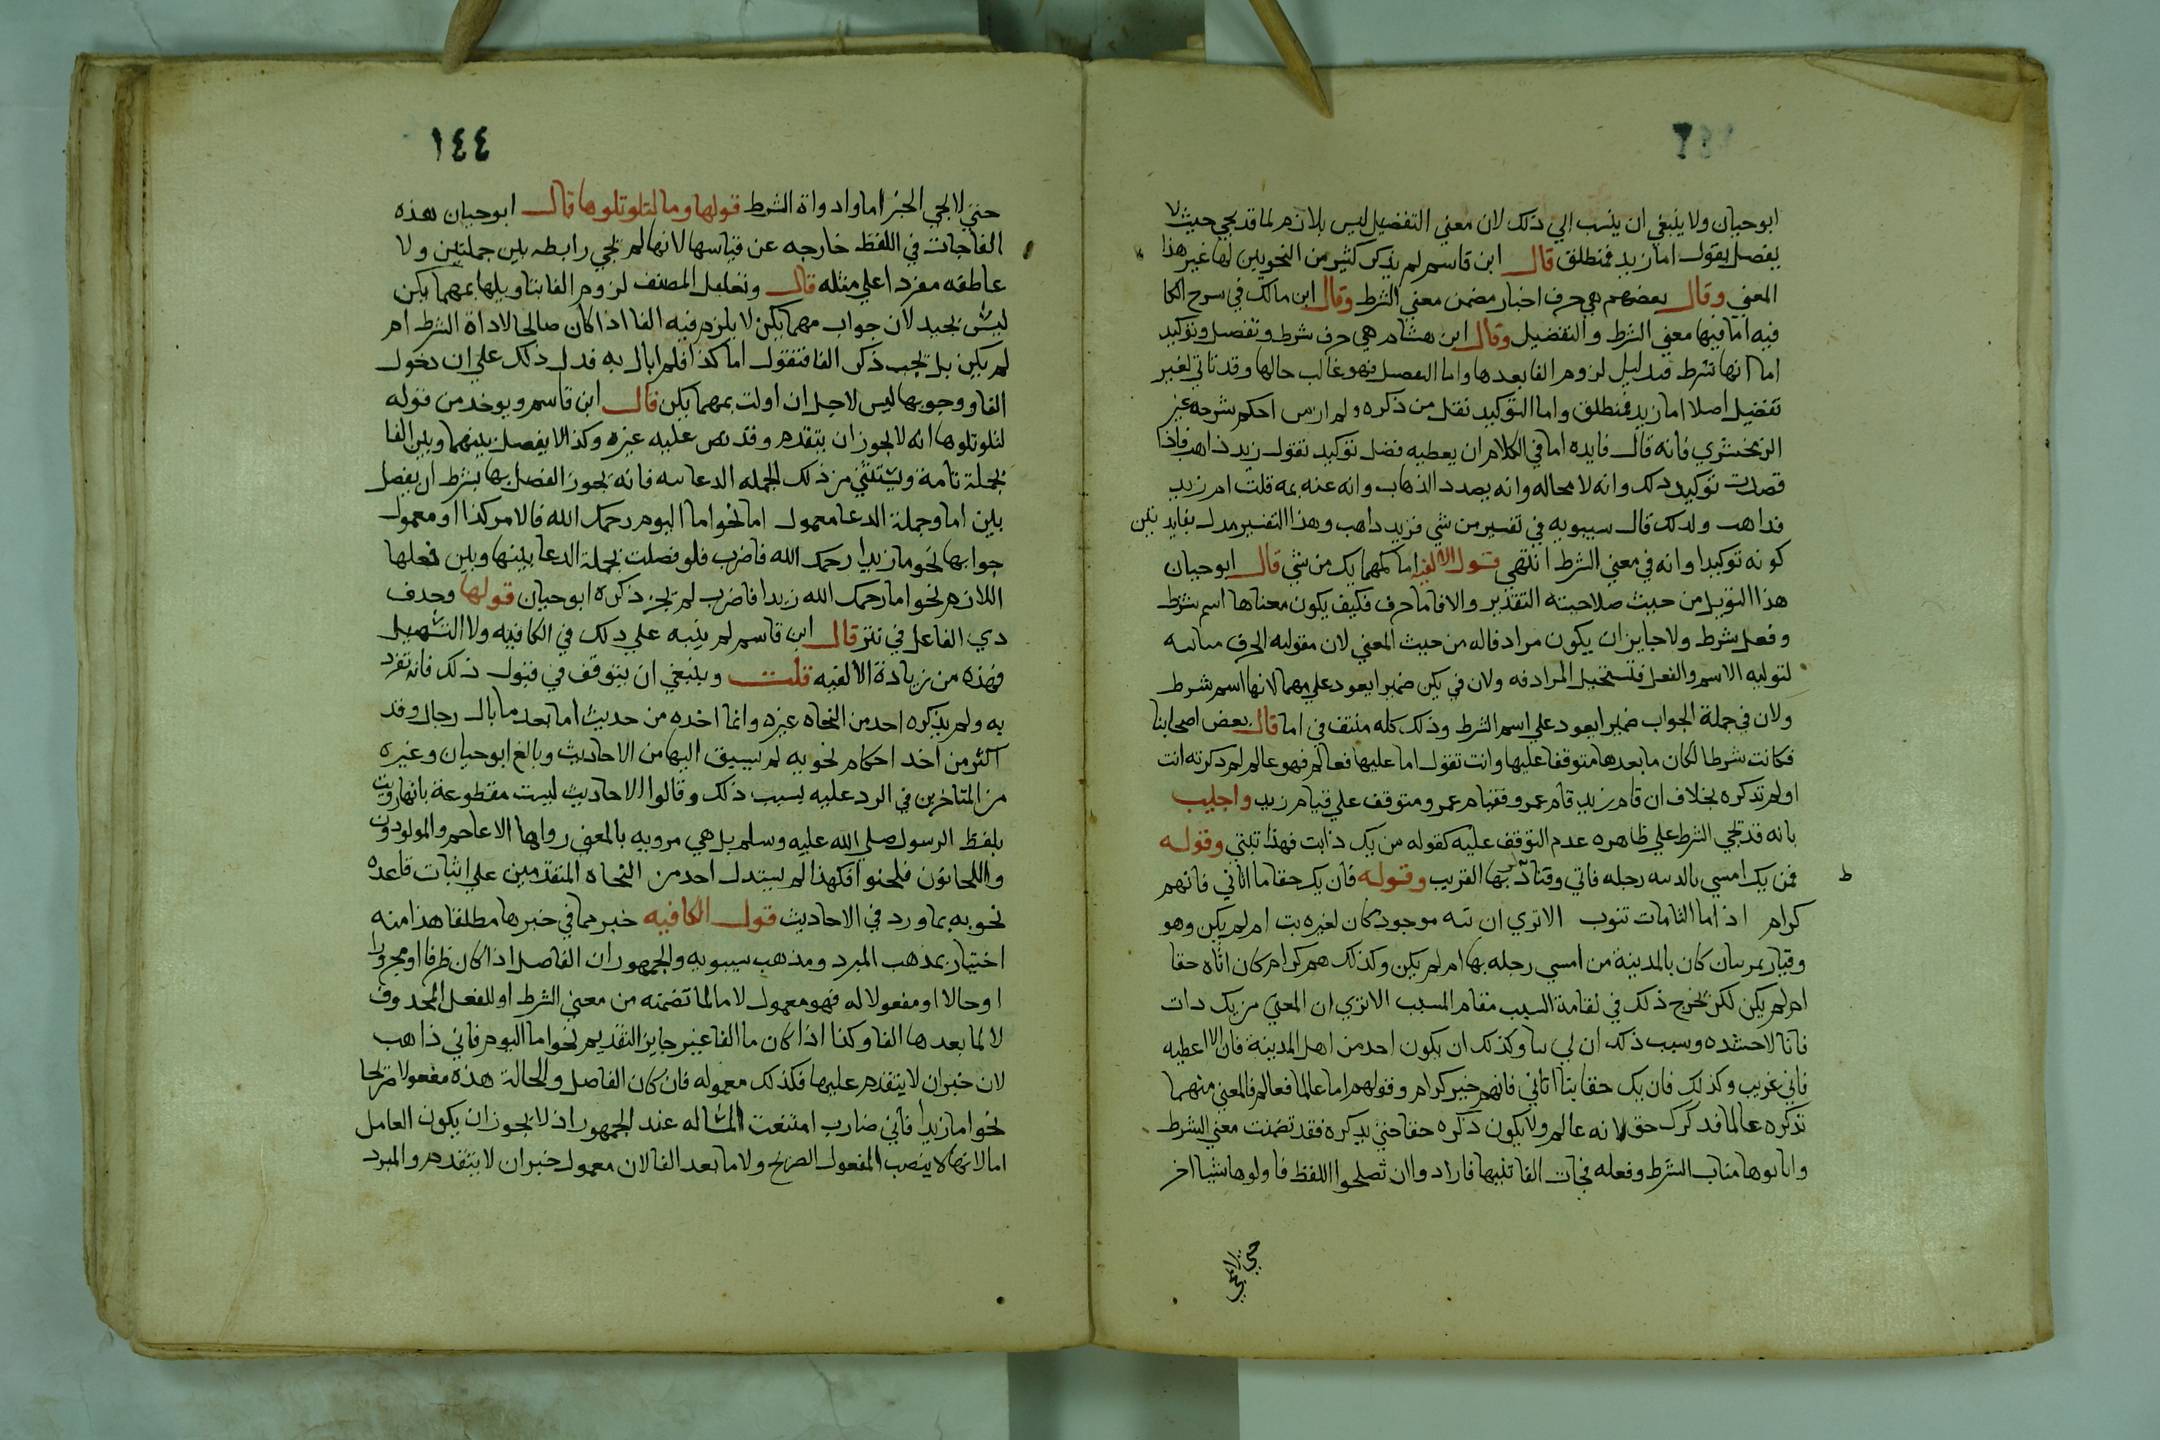 ابوحيان ولا ينبغي ان ينسب الي ذلك لان معني التفضيل ليس بلازم لما قد يجي حيث لا
يفصل يقول اما زيد فمنطلق قال ابن قاسم لم يذكر كثير من النحويين لها غير هذا
المعني وقال بعضهم هي حرف اخبار مضمن معني الشرط وقال ابن مالك في سرح الكا
فيه اما فيها معني الشرط والتفضيل وقال ابن هشام هي حرف شرط وتفصل وتوكيد
اما انها شرط فبدليل لزوم الفا بعدها واما التفصيل فهو غالب حالها وقد تاتي لغير
تفضيل اصلا اما زيد فمنطلق واما التوكيد نقل من ذكره ولم ار من احكم شرحه غير
الزمخشري فانه قال فايده اما في الكلام ان يعطيه فضل توكيد تقول زيد ذاهب فاذا
قصدت توكيد ذلك وانه لا محاله وانه بصدد الذهاب وانه عنه بمه قلت ام زيد
فداهب ولذلك قال سيبويه في تفسير من شي فزيد داهب وهذا التفسير مدل بفايد تين
كونه توكيدا وانه في معني الشرط انتهي قول الالفيه اما كمهما يك من شي قال ابوحيان
هذا التويل من حيث صلاحيته التقدير والا فاما حرف فكيف يكون معناها اسم شرط
وفعل شرط ولا جايز ان يكون مرادفا له من حيث المعني لان مقوليه الحرف مباينه
لتوليه الاسم والفعل فتستحيل المرادفه ولان في يكن ضميرا يعود علي مهما لانها اسم شرط
ولان في جملة الجواب ضميرا يعود علي اسم الشرط وذلك كله منتف في اما قال بعض اصحابنا
فكانت شرطا لكان ما بعدها متوقفا عليها وانت تقول اما عليها فعالم فهو عالم لم ذكرته انت
اولم تذكره بخلاف ان قام زيد قام عمرو فقيام عمرو متوقف علي قيام زيد واجيب
بانه قد تجي الشرط علي ظاهره عدم التوقف عليه كقوله من يك ذابت فهذا تبتي وقوله
فمن يك امسي بالدسه رحله فاني وقتاد بها القريب وقوله فان يك حقا ما اتاني فانهم
كرام اذ اما الثامات تنوب الا تري ان بته موجود كان لغيره بت ام لم يكن وهو
وقيار بمرسان كان بالمدينة من امسي رحله بها ام لم يكن وكذلك هم كرام كان اتاه حقا
ام لم يكن لكن يخرج ذلك في لقامة السبب مقام المسبب الا تري ان المعني من يك دات
فانا لا حشده وسبب ذلك ان لي بتا وكذلك ان يكون احد من اهل المدينة فان لا اعطيه
فاني غريب وكذلك فان يك حقا بنا اتاني فانهم خير كرام وقولهم اما عالما فعالم فالمعني متهما
تذكره عالما فد كرك حق لانه عالم ولا يكون ذكره حقا حتي يدكره فقد تضمنت معني الشرط
وانابوها مناب الشرط وفعله فجات الفا تليها فارادوا ان تصلحوا اللفظ فاولوها شيئا اخر
حتي لا يجي
١٤٤
حتي لا يجي الخبر اما واداة الشرط قولها وما لتلو تلوها قال ابوحيان هذه
الفا جات في اللفظ خارجه عن قياسها لانها لم تجي رابطه بين جملتين ولا
عاطفه مفردا علي مثله قال وتعليل المصنف لزوم الفا بتاويلها بمهما يكن
ليس بجيد لان جواب مهما يكن لا يلزم فيه الفا اذا كان صالحا لاداة الشرط ام
لم يكن بل يجب ذكر الفا فتقول اما كذا فلم ابال به فدل ذلك علي ان دخول
الفا ووجوبها ليس لاجل ان اولت بمهما يكن قال ابن قاسم ويوخد من قوله
لتلو تلوها انه لا يجوز ان يتقدم وقد نص عليه غيره وكذا لا يفصل بينهما وبين الفا
بجملة تامة ويستثني من ذلك الجمله الدعاىيه فانه يجوز الفصل بها بشرط ان يفصل
بين اما وجملة الدعا معمول اما نحو اما اليوم رحمك الله فالامر كذا او معمول
جوابها نحو ما زيدا رحمك الله فاضرب فلو فصلت بجملة الدعا بينها وبين فعلها
اللازم نحو اما رحمك الله زيدا فاضرب لم يجز ذكره ابوحيان قولها وحدف
دي الفا عل في نثر قال ابن قاسم لم ينبه علي ذلك في الكافيه ولا التسهيل
فهذه من زيادة الالفيه قلت وينبغي ان يتوقف في قبول ذلك فانه تفرد
به ولم يذكره احد من النحاه غيره وانما اخده من حديث اما بعد ما بال رجال وقد
اكثر من اخد احكام نحويه لم يسبق اليها من الاحاديث وبالغ ابوحيان وغيره
من المتاخرين في الرد عليه بسبب ذلك وقالوا الاحاديث ليست مقطوعة بانها رويت
بلفظ الرسول صلي الله عليه وسلم بل هي مرويه بالمعني رواها الاعاجم والمولودون
واللحانون فلحنوا فكهذا لم يستدل احد من النحاه المتقدمين علي اثبات قاعده
نحويه بما ورد في الاحاديث قول الكافيه خبر مما في خبرها مطلقا هذا منه
اختيار بمذهب المبرد ومذهب سيبويه والجمهور ان الفاصل اذا كان ظرفا او مجرورا
او حالا او مفعولا له فهو معمول لاما لما تضمنه من معني الشرط او للفعل المحدوف
لا لما بعدها الفا وكذا اذا كان ما الفا غير جايز التقديم نحو اما اليوم فاني ذاهب
لان خبر ان لا يتقدم عليها فكذلك معموله فان كان الفاصل والحالة هذه مفعولا صريحا
نحو اما زيدا فاني ضارب امتنعت المساله عند الجمهور اذ لا يجوز ان يكون العامل
اما لانها لا ينصب المفعول الصريح ولا ما بعد الفا لان معمول خبر ان لا يتقدم والمبرد